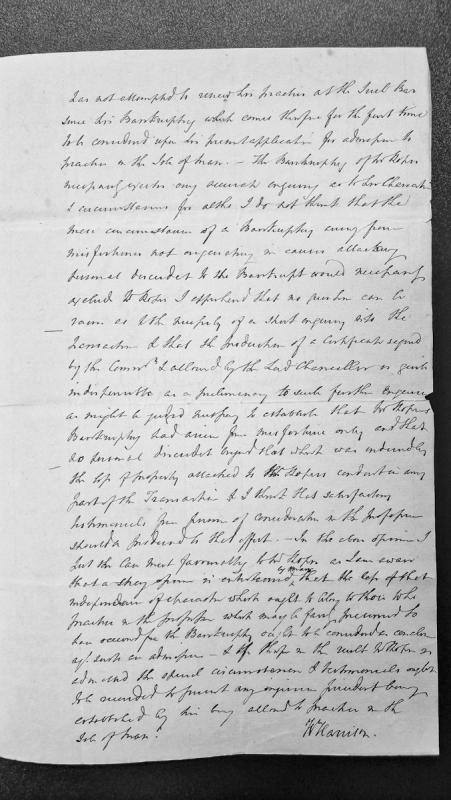 has not attempted to renew his practice at the Bar
since his Bankruptcy which comes therefore for the first time
to be considered upon his present application for admission to
practice in the Isle of Man. — The Bankruptcy of Mr Roper
necessarily excites any enquiry as to his Character
& circumstances for altho I do not think that the
mere circumstance of a Bankruptcy arising from
misfortunes not originating in causes attaching
personal discredit to the Bankrupt would necessarily
exclude Mr Roper I apprehend that no question can be
as to the necessity of a strict enquiry into the
transaction & that the production of a Certificate signed
by the Commrs & allowed by the Lord Chancellor is quite
indispensible as a preliminary to such further enquiries
as might be judged necessary to establish that Mr Ropers
Bankruptcy had arisen from misfortune only and that
no personal discredit beyond that which was induced by
the loss of property attached to Mr Ropers conduct in any
part of the Transaction & I think that satisfactory
testimonials from persons of consideration in the profession
should be produced to that effect. — In the above opinion I
put the Case most favourably to Mr Roper as I am aware
that a strong opinion is entertained by many that the loss of that
independence of character which ought to belong to those who
practice in the profession which may be fairly presumed to
have occurred from the Bankruptcy ought to be considered as conclusive
agt such an admission — & if in the result Mr Roper is
admitted the special circumstances & testimonials ought
to be recorded to prevent any precedent being
established by his being allowed to practice in the
Isle of Man.
Wm Harrison.